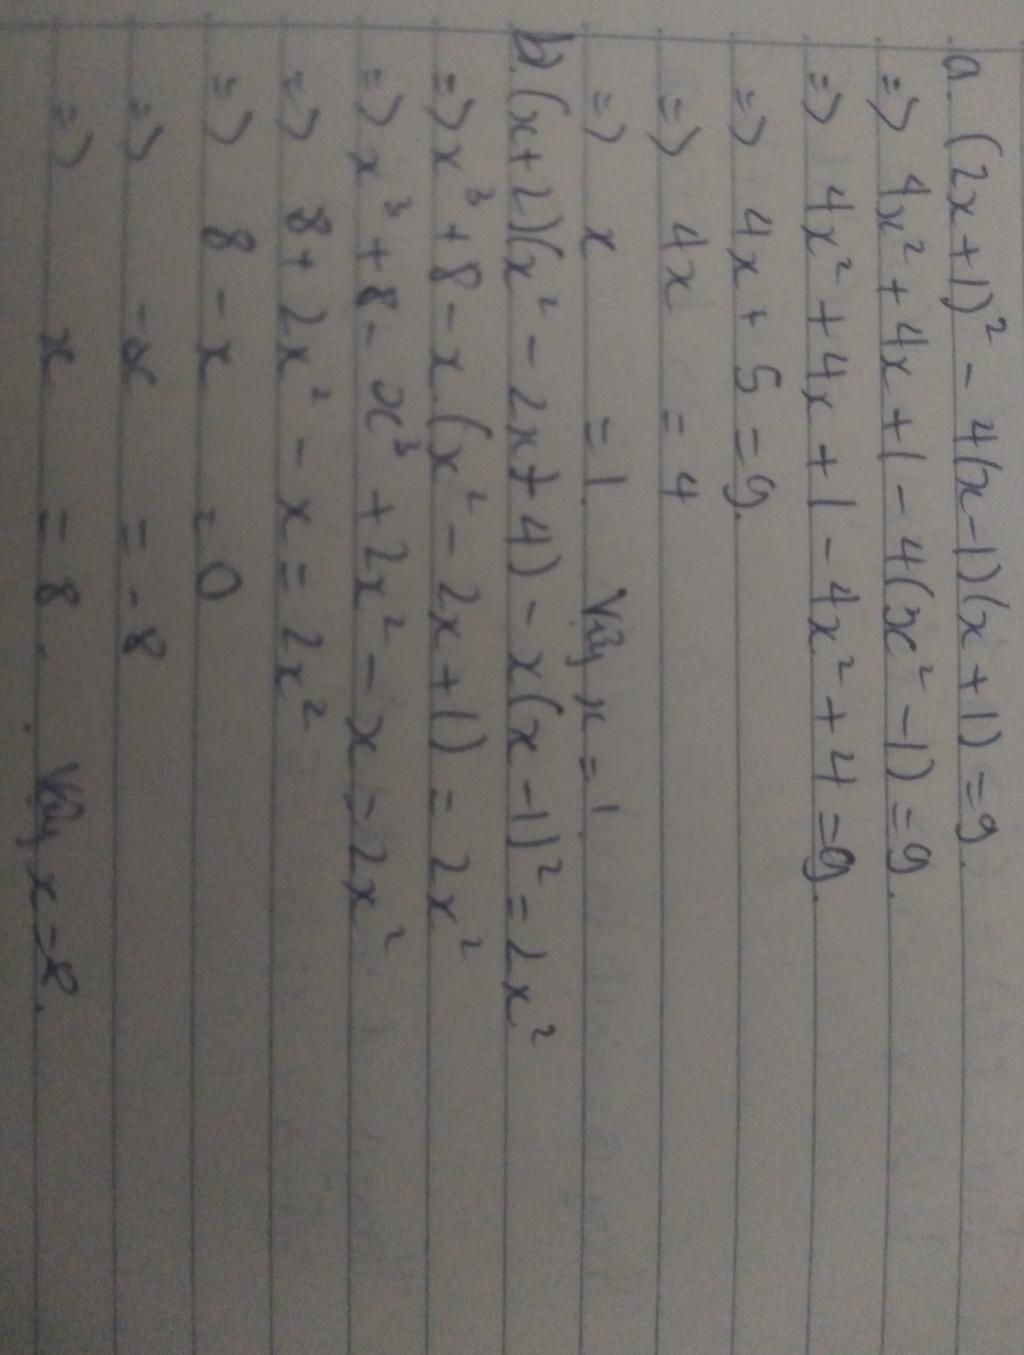 a. (2x+1)² - 4(x-1)(x+1) = 9.
=) 4x² + 4x + 1 - 4(x² - 1) = 9.
=) 4x² + 4x + 1 - 4x² + 4 = 9.
=) 4x + 5 = 9.
=) 4x = 4
=) x = 1. Vậy x = 1
b. (x+2)(x² - 2x + 4) - x(x-1)² = 2x²
=) x³ + 8 - x.(x² - 2x + 1) = 2x²
=) x³ + 8 - x³ + 2x² - x = 2x²
=) 8 + 2x² - x = 2x²
=) 8 - x = 0
=) -x = -8
=) x = 8. Vậy x = 8.